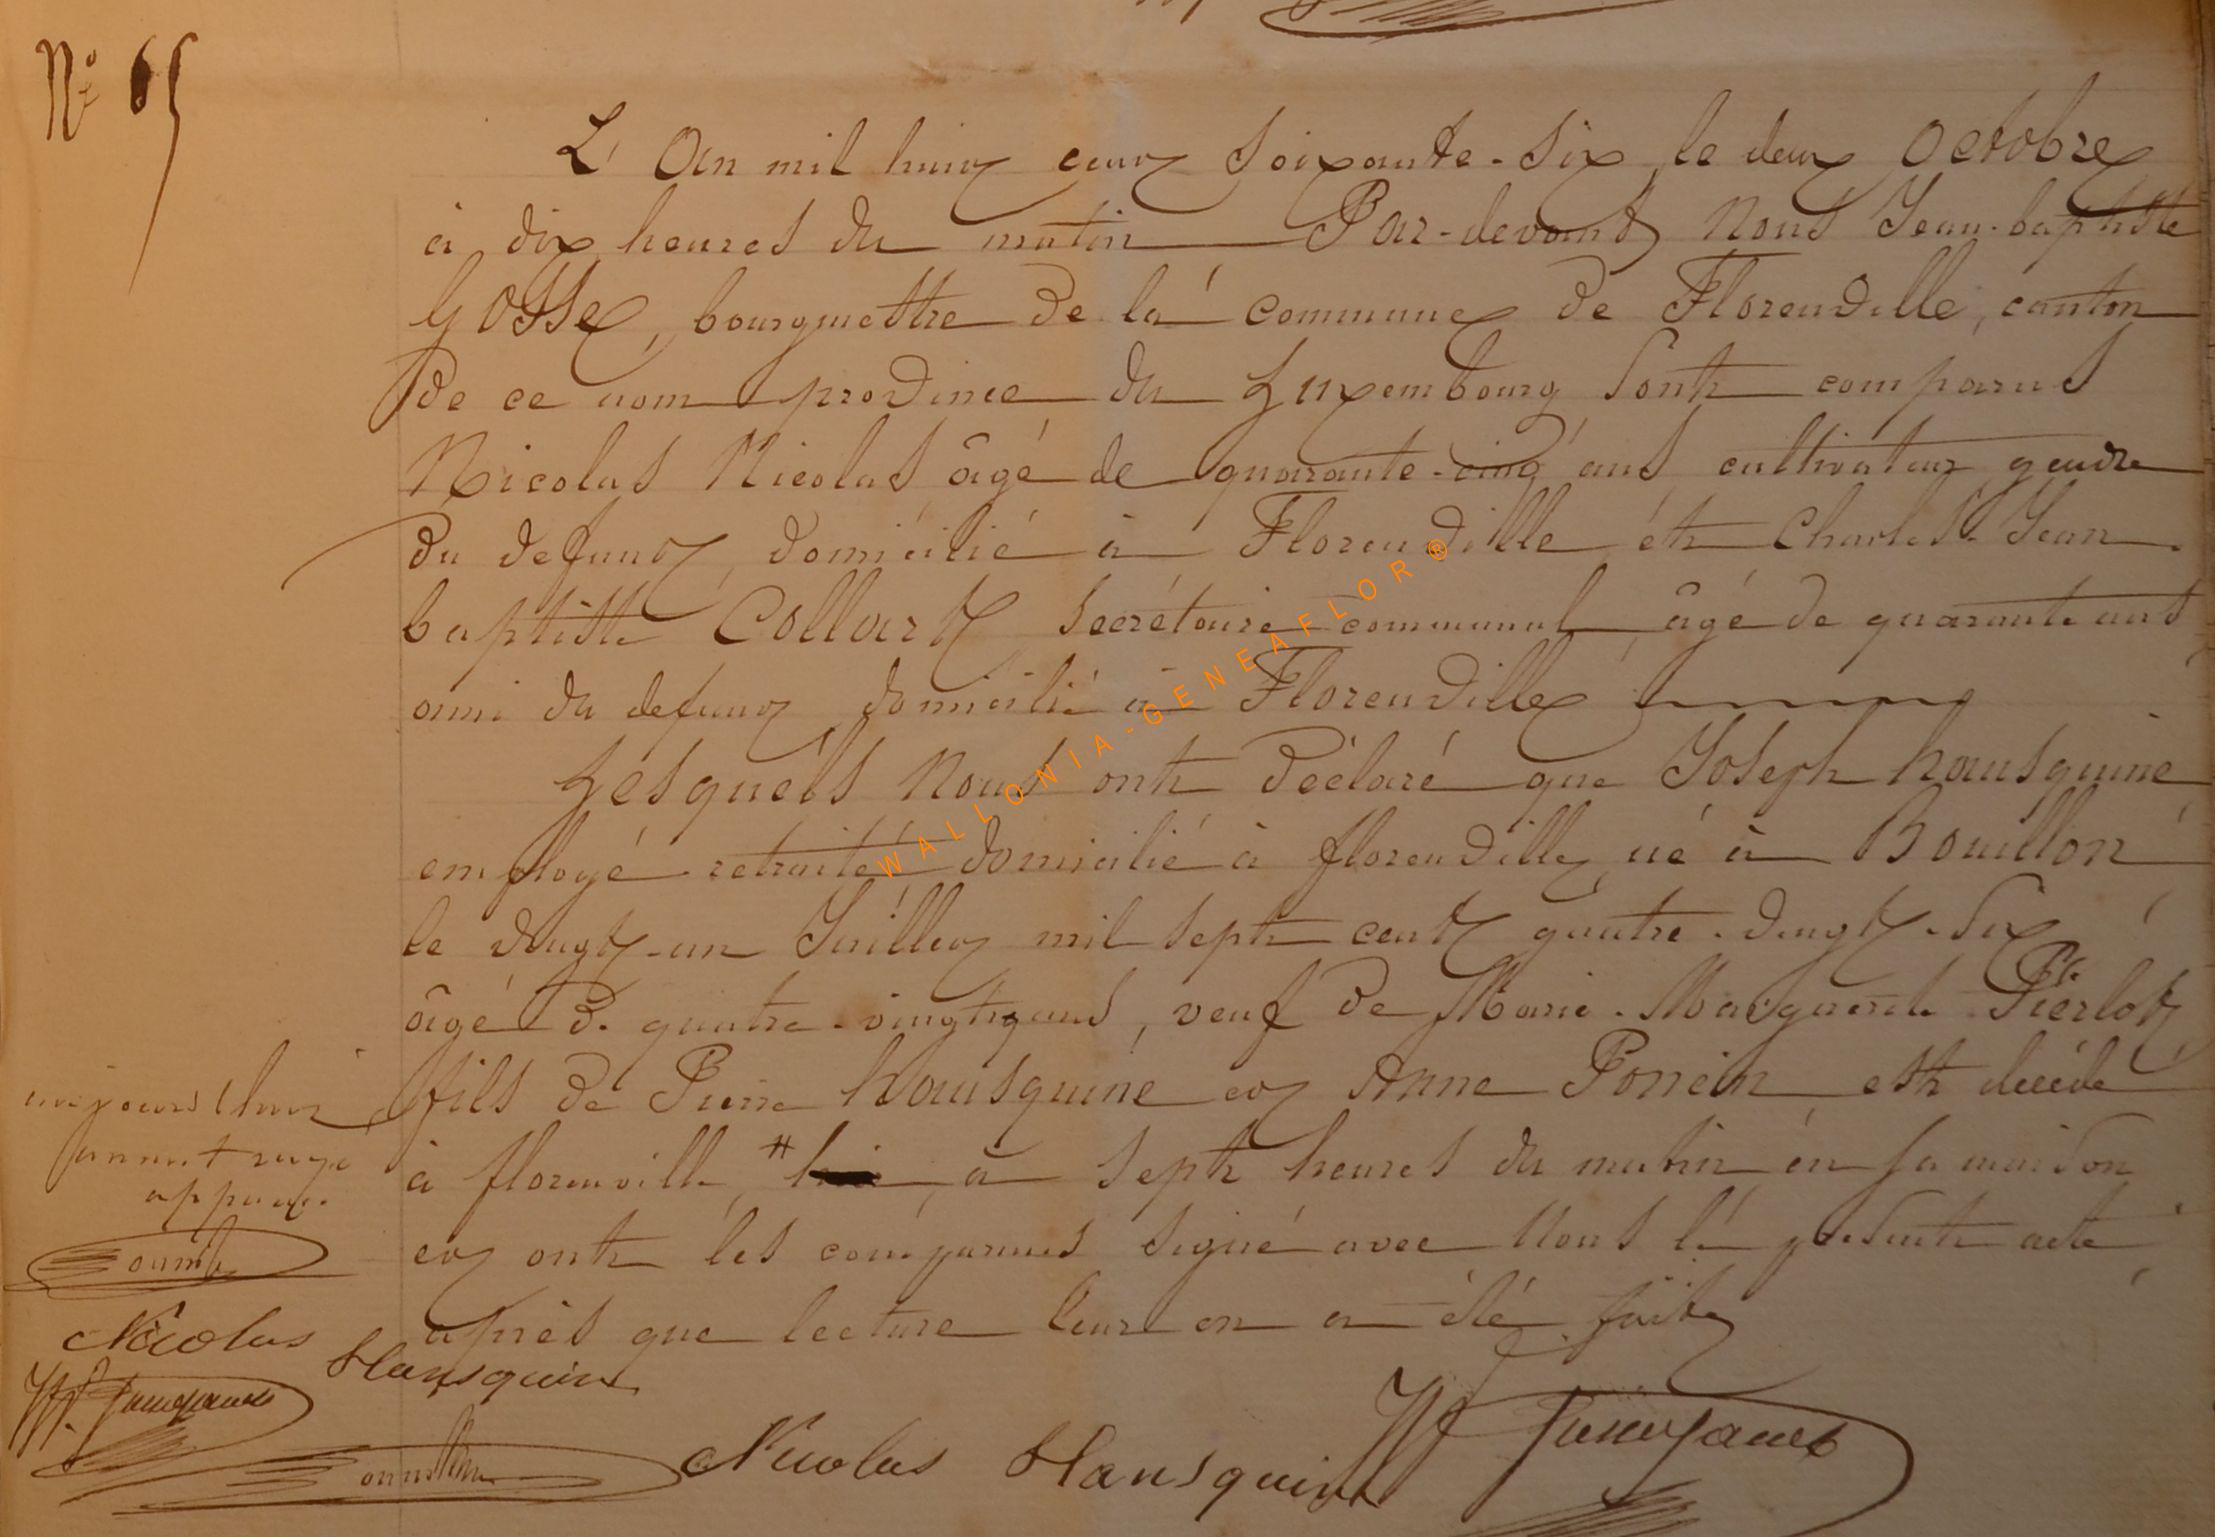 N° 65
L'An mil huit cent soixante-six, le deux Octobre
à dix heures du matin Par-devant Nous Jean-baptiste
Gosse, bourgmettre de la commune de Florenville, canton
de ce nom province du Luxembourg sont comparus
Nicolas Nicolas âgé de quarante-cinq ans, cultivateur gendre
du defunt, domicilié à Florenville et Charles-Jean-
baptiste Collart, secrétaire communal, âgé de quarante ans
ami du defunt domicilié à Florenville
Lesquels Nous ont déclaré que Joseph hansquine
employé retraité domicilié à florenville, né à Bouillon
le vingt-un Juillet mil sept cent quatre-vingt-six
âgé de quatre-vingts ans, veuf de Marie-Marguerite Pierlot
fils de Pierre hansquine et Anne Poncin est décédé
à florenville, # à sept heures du matin en sa maison
et ont les comparus signé avec Nous le présent acte
après que lecture leur en a été faite
aujourd'hui
approuvé.
Nicolas Hansquine
Nicolas Hansquine
WALLONIA-GENEAFLOR®